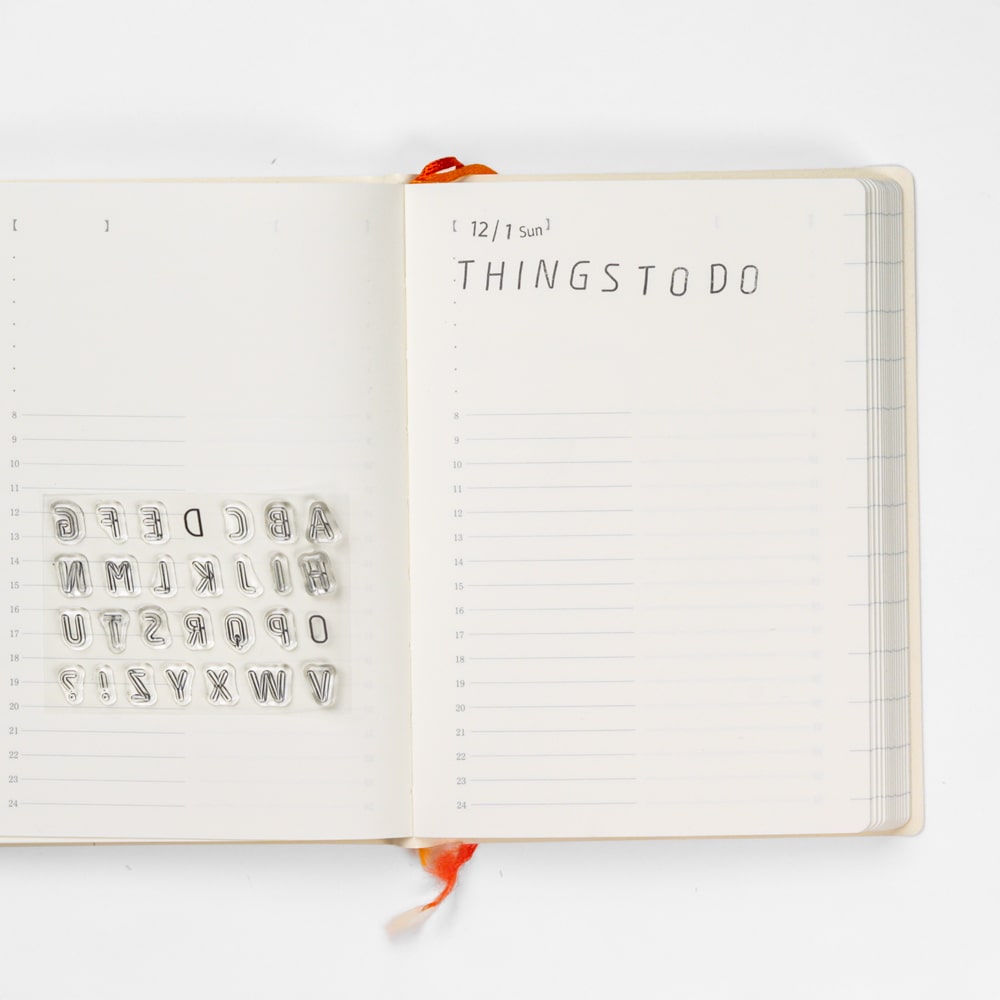 【 】
8
9
10
11
12
13
14
15
16
17
18
19
20
21
22
23
24
G F E D C B A
N M L K J I H
U T S R Q P O
? ! Z Y X W V
【 12/1 Sun】
THINGS TO DO
8
9
10
11
12
13
14
15
16
17
18
19
20
21
22
23
24